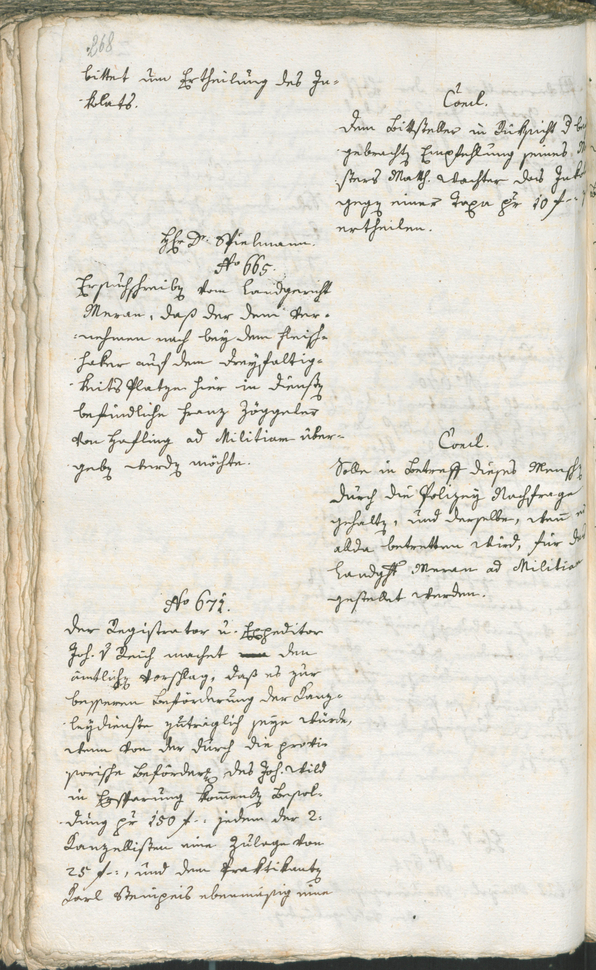 268
bittet um Ertheilung des In-
kolats.
Concl.
Dem Bittsteller in Rüksicht d
gebrachtḙ Empfehlung seines
sters Math. Wachter das Ink
gegḙ einer Taxa pr 10 f.
ertheilen.
Hhr Dr. Spielmann.
No 665.
Ersuchschreibḙ vom Landgericht
Meran, daß der dem Ver-
nehmen nach bey dem Fleisch-
haker auf dem Dreyfaltig-
keits Platze hier in Dienstḙ
befindliche Franz Zöggeler
von Hafling ad Militiam über-
gebḙ werdḙ möchte.
Concl.
Solle in Betreff dieses Mensch
durch die Polizey Nachfrage
gehaltḙ, und derselbe, wenn er
alda betretten wird, für das
Landght Meran ad Militia
gestellet werden.
No 671.
Der Registrator u. Expeditor
Joh. v Reich machet den
ämtlichḙ Vorschlag, daß es zur
besseren Beförderung der Kanz-
leydienste zuträglich seyn würde,
wenn von der durch die provi-
sorische Beförderg des Joh. Wild
in Ersparung kommendḙ Besol-
dung pr 150 f.: jedem der 2
Kanzellisten eine Zulage von
25 f.:, und dem Praktikantḙ
Karl Stempeis ebenmäßig eine